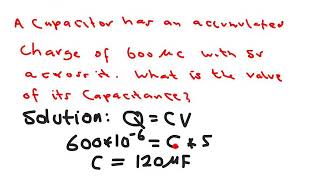 A capacitor has an accumulated
charge of 600 μc with 5v
across it. What is the value
of its capacitance?
Solution: Q = CV
600*10⁻⁶ = C * 5
C = 120μF